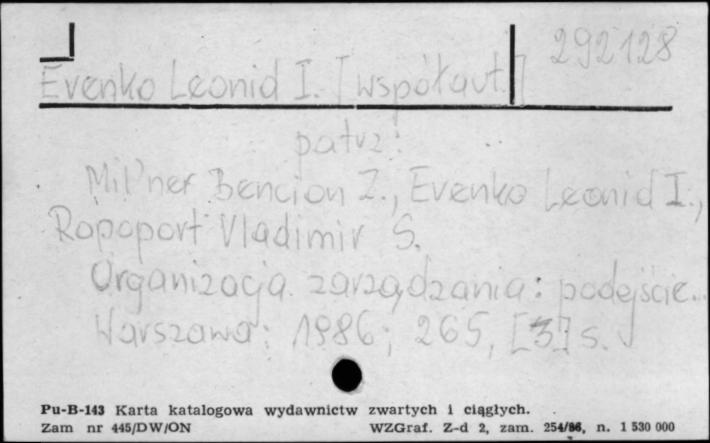 292128
Evenko Leonid I. [współaut.]
patrz:
Mil'ner Bencion Z., Evenko Leonid I.,
Rapoport Vladimir S.
Organizacja zarządzania: podejście...
Warszawa: 1986; 265, [3] s.
Pu-B-143 Karta katalogowa wydawnictw zwartych i ciągłych.
Zam nr 445/DW/ON WZGraf. Z-d 2, zam. 254/86, n. 1 530 000